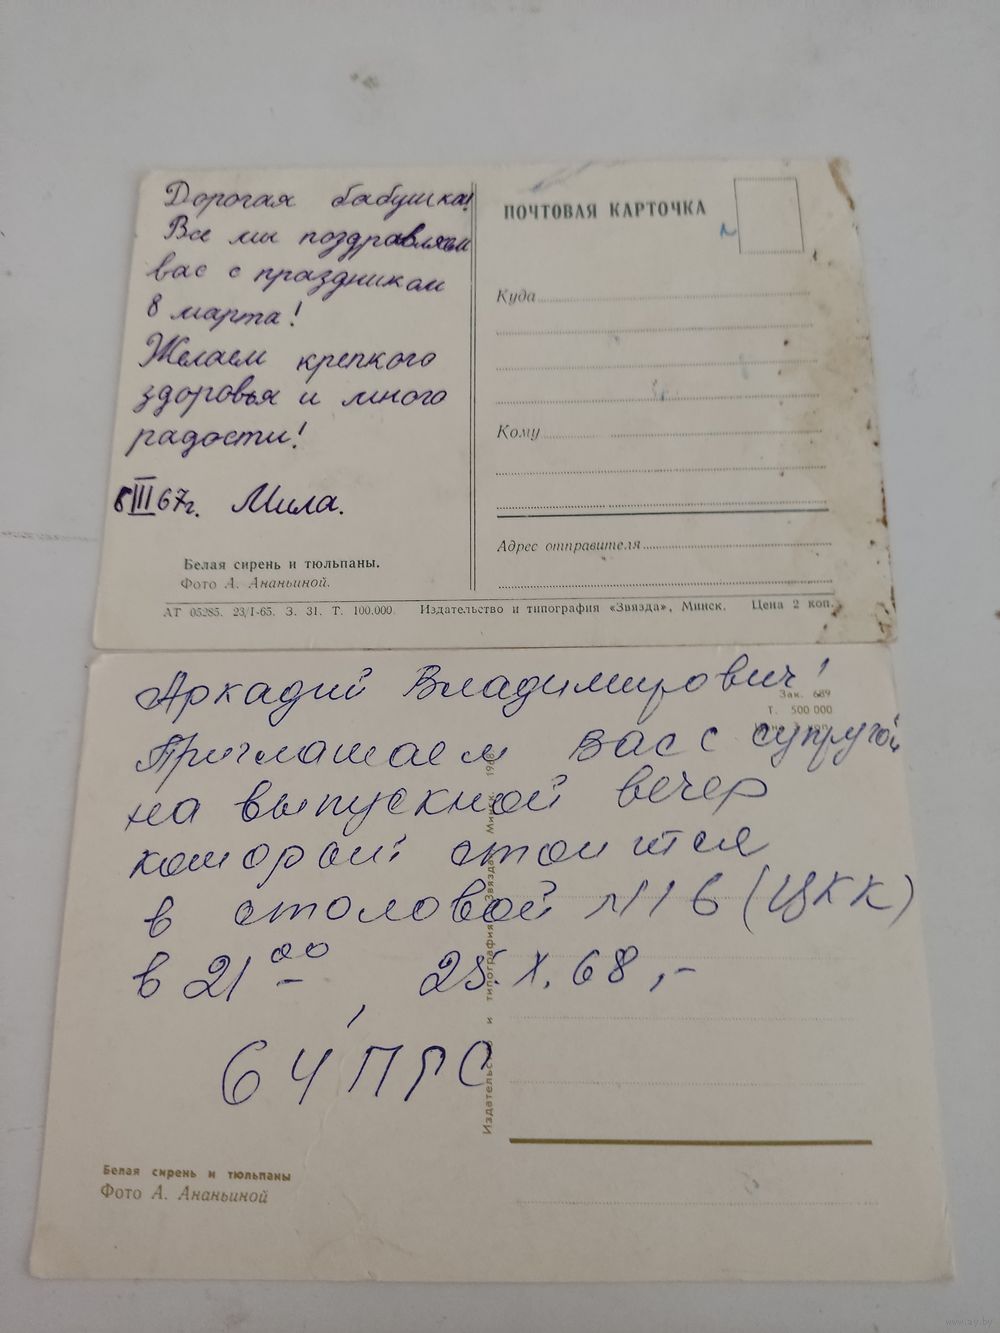 Дорогая бабушка!
Все мы поздравляем
вас с праздником
8 марта!
Желаем крепкого
здоровья и много
радости!
8 III 67г. Мила.
Белая сирень и тюльпаны.
Фото А. Ананьиной.
ПОЧТОВАЯ КАРТОЧКА
Куда
Кому
Адрес отправителя
АГ 05285. 23/I-65. З. 31. Т. 100.000. Издательство и типография «Звязда», Минск. Цена 2 коп.
Аркадий Владимирович!
Приглашаем Вас с супругой
на выпускной вечер
который стоится
в столовой №16 (ЦКК)
в 21 00, 25.X.68,-
64 ПРС
Зак. 689
Т. 500 000
Издательство и типография «Звязда», Минск
Белая сирень и тюльпаны
Фото А. Ананьиной
www.ay.by